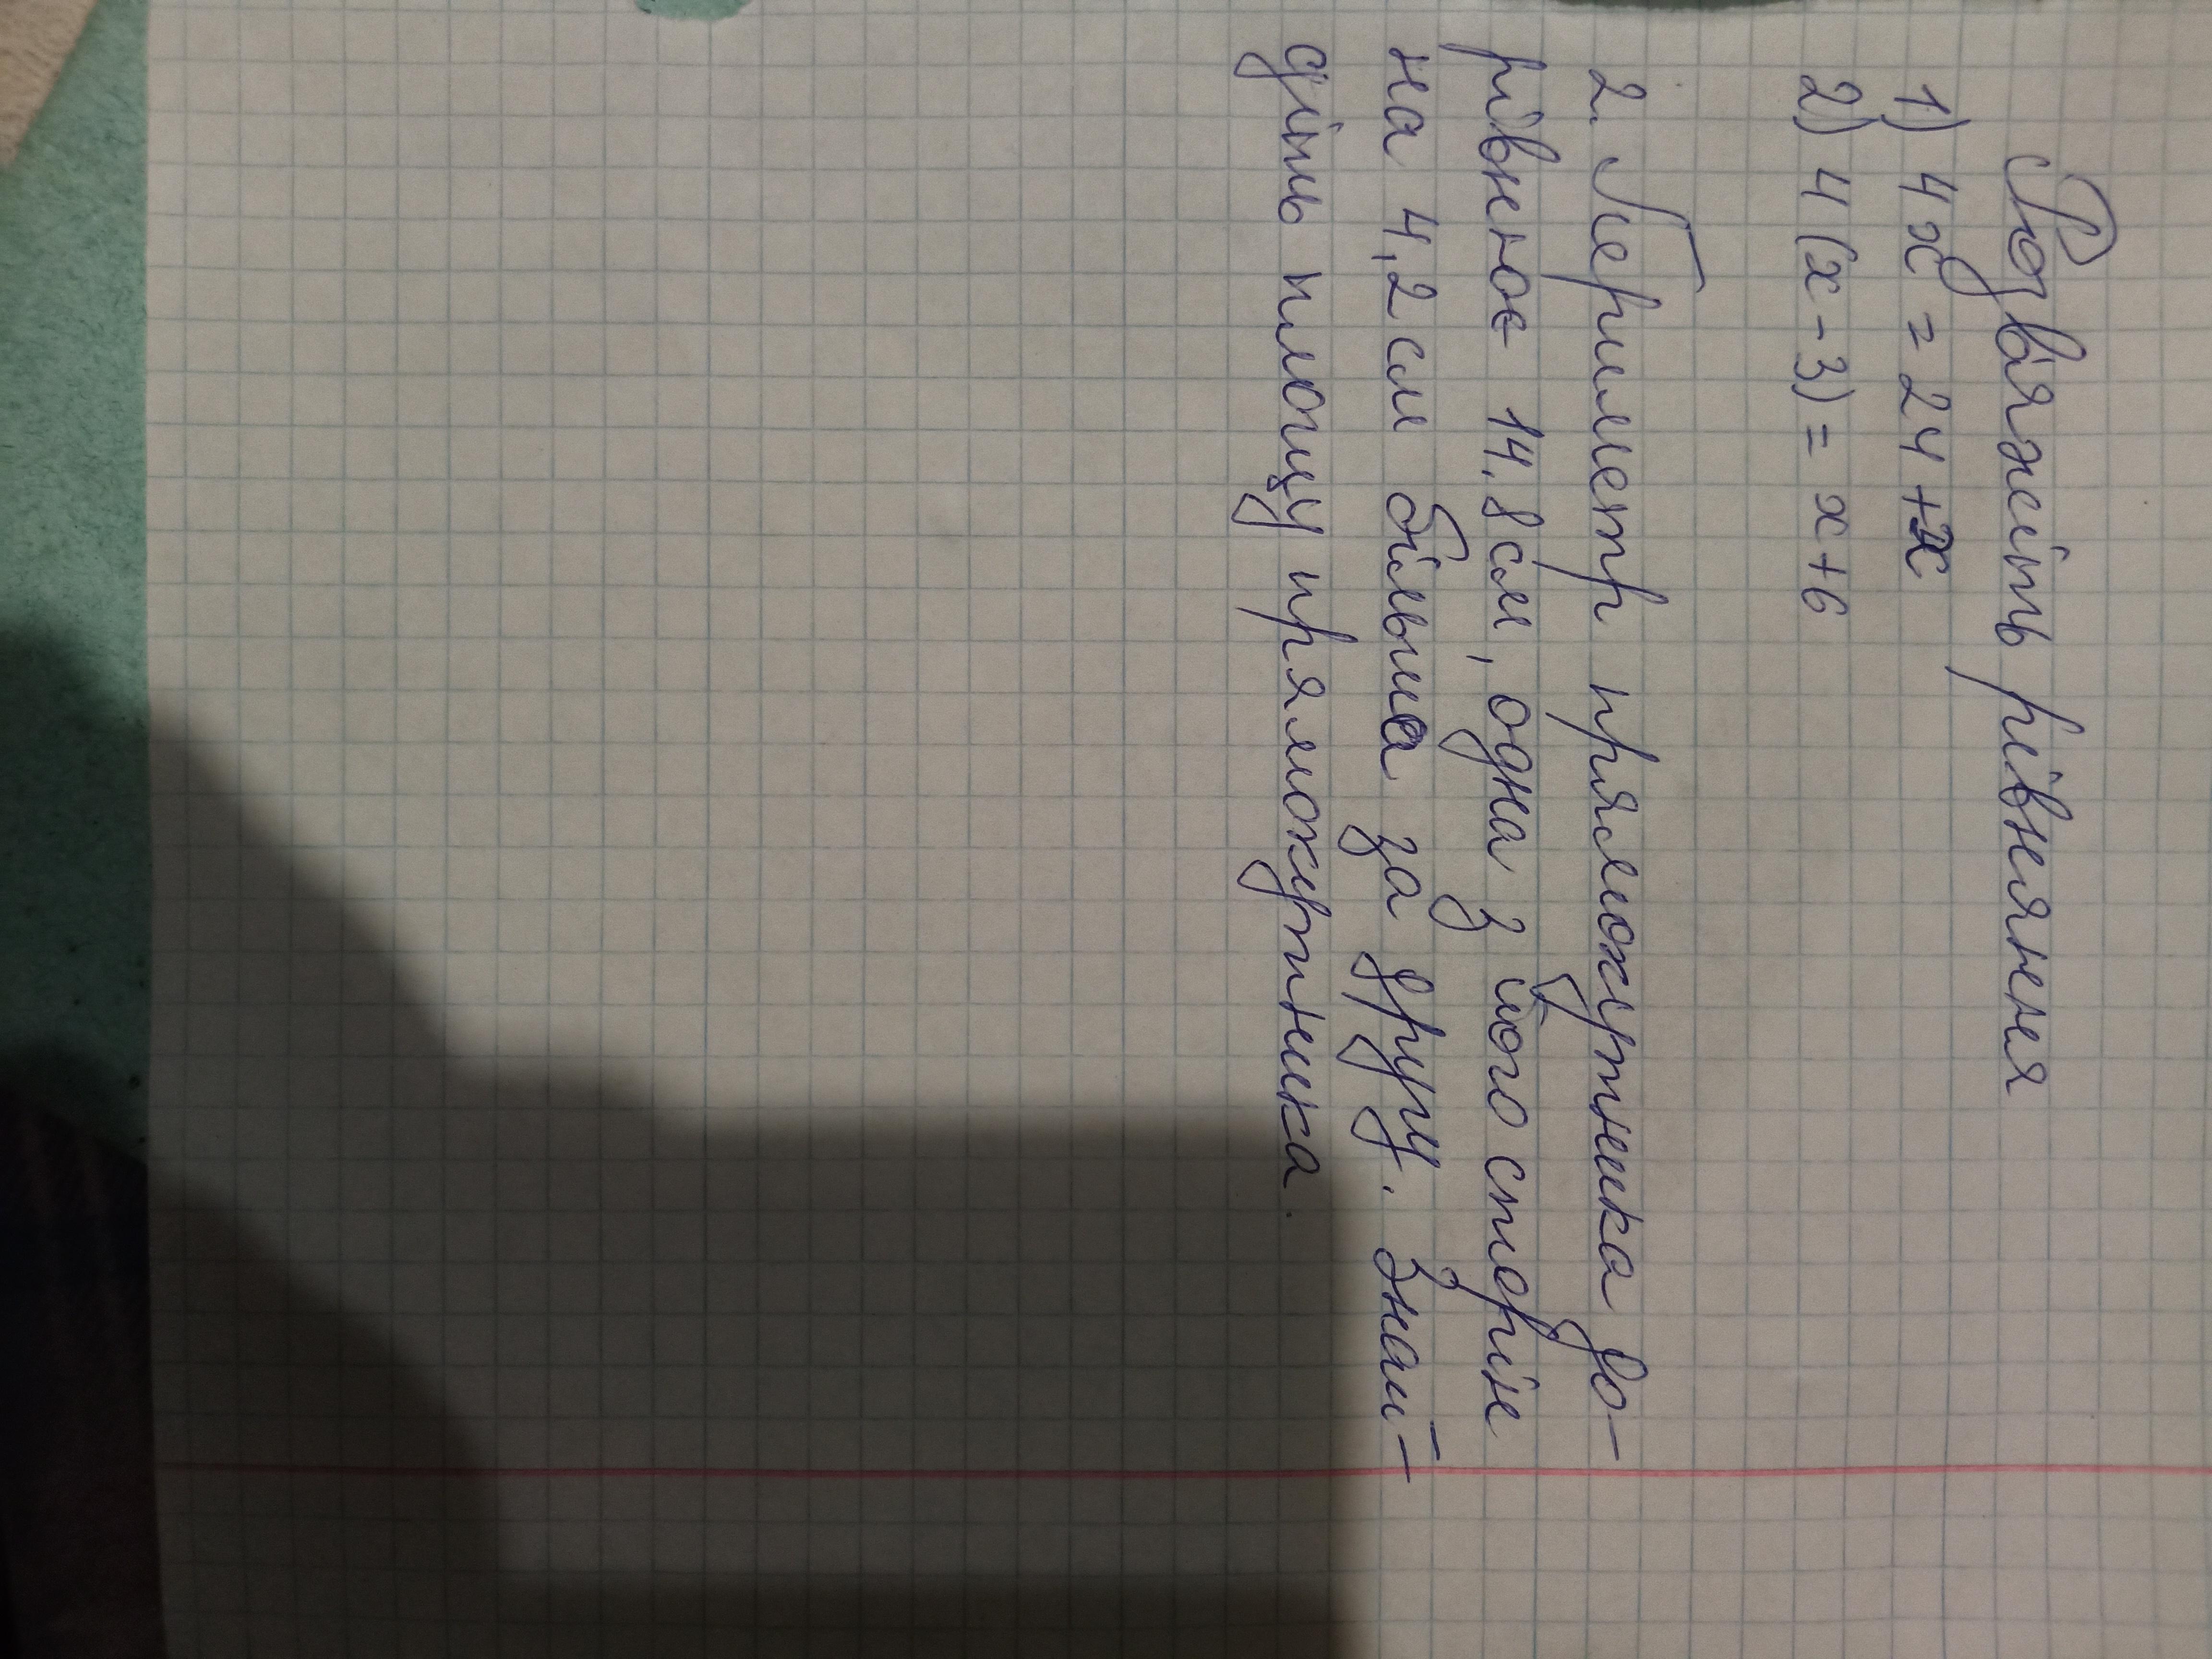 Розв'яжіть рівняння
1) 4x = 24 + x
2) 4(x - 3) = x + 6
2. Периметр прямокутника до-
рівнює 14,8 см, одна з його сторін
на 4,2 см більша за другу. Знай-
діть площу прямокутника.